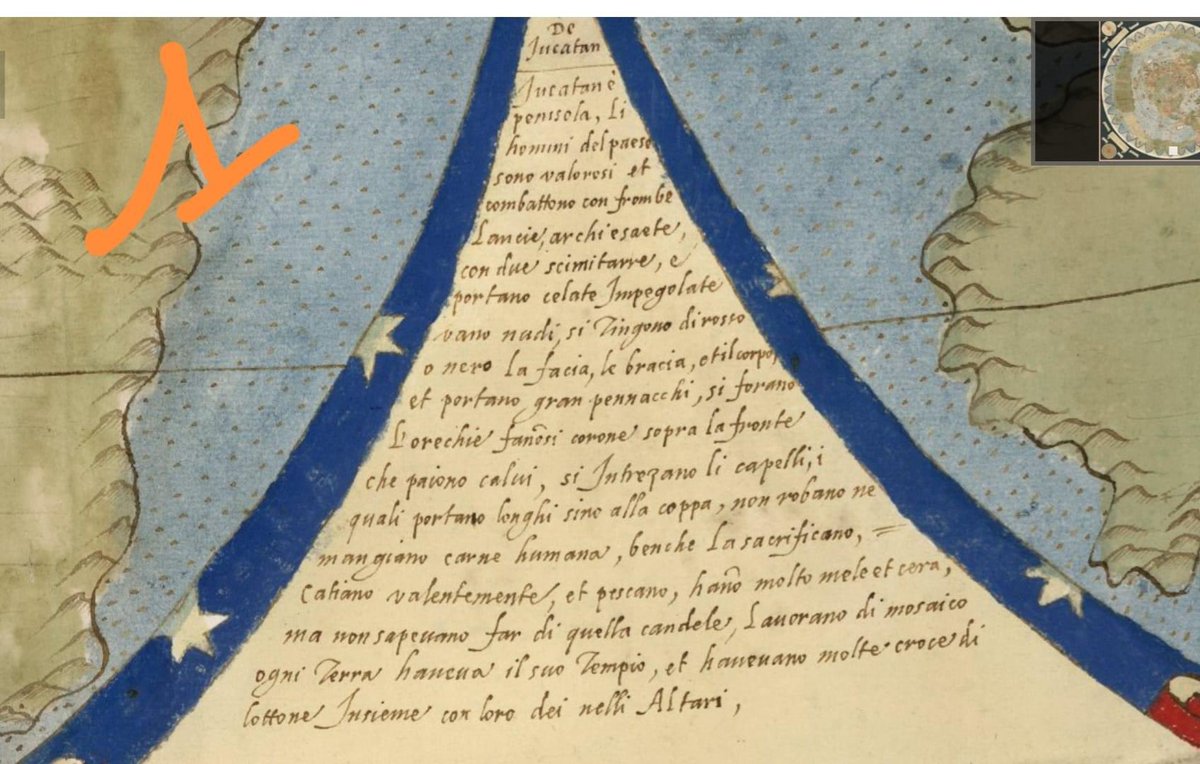 De
Jucatan
Jucatan è
penisola, Li
homini del paese
sono valorosi et
combattono con frombe
Lancie, archi e saete,
con due scimitarre, e
portano celate Impegolate
vano nudi, si Tingono di rosso
o nero la facia, le bracia, et il corpo,
et portano gran pennacchi, si forano
L'orechie fanosi corone sopra la fronte
che paiono calui, si Intrezano li capelli, i
quali portano longhi sino alla coppa, non robano ne
mangiano carne humana, benche La sacrificano, =
Catiano valentemente, et pescano, hano molto mele et cera,
ma non sapeuano far di quella candele, Lauorano di mosaico
ogni Terra haueua il suo Tempio, et haueuano molte croce di
lottone Insieme con loro dei nelli Altari,